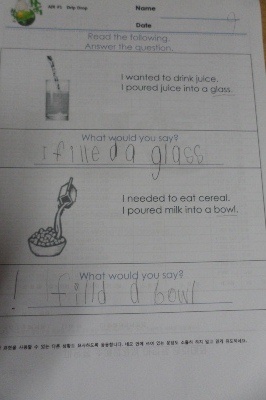 Name
Date
Read the following.
Answer the question.
I wanted to drink juice.
I poured juice into a glass.
What would you say?
i filled a glass
I needed to eat cereal.
I poured milk into a bowl.
What would you say?
I filld a bowl